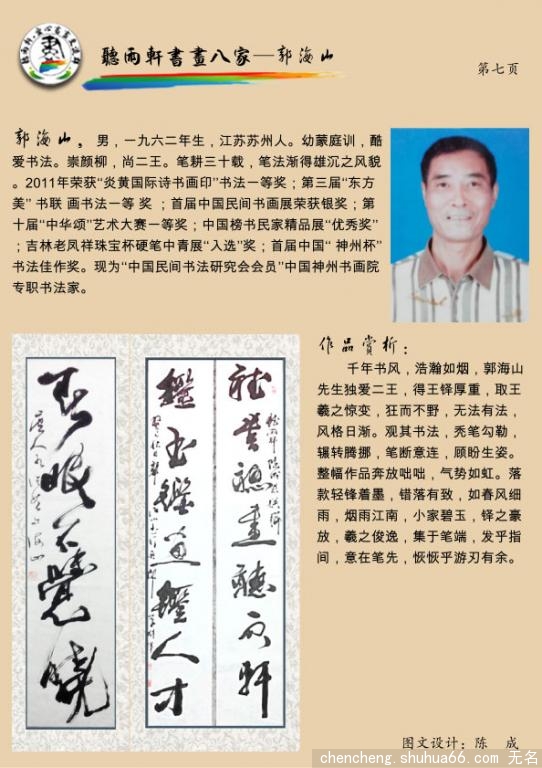 聽雨軒書畫八家—郭海山
第七页
郭海山，男，一九六二年生，江苏苏州人。幼蒙庭训，酷
爱书法。崇颜柳，尚二王。笔耕三十载，笔法渐得雄沉之风貌
。2011年荣获“炎黄国际诗书画印”书法一等奖；第三届“东方
美” 书联 画书法一等 奖 ；首届中国民间书画展荣获银奖；第
十届“中华颂”艺术大赛一等奖；中国榜书民家精品展“优秀奖”
；吉林老凤祥珠宝杯硬笔中青展“入选”奖；首届中国“ 神州杯”
书法佳作奖。现为“中国民间书法研究会会员”中国神州书画院
专职书法家。
作品赏析：
千年书风，浩瀚如烟，郭海山
先生独爱二王，得王铎厚重，取王
羲之惊变，狂而不野，无法有法，
风格日渐。观其书法，秃笔勾勒，
辗转腾挪，笔断意连，顾盼生姿。
整幅作品奔放咄咄，气势如虹。落
款轻锋着墨，错落有致，如春风细
雨，烟雨江南，小家碧玉，铎之豪
放，羲之俊逸，集于笔端，发乎指
间，意在笔先，恢恢乎游刃有余。
春眠不覺曉
聽畫聽雨軒
鑑玉鑑道鑑人才
图文设计：陈 成
chencheng.shuhua66.com 无名